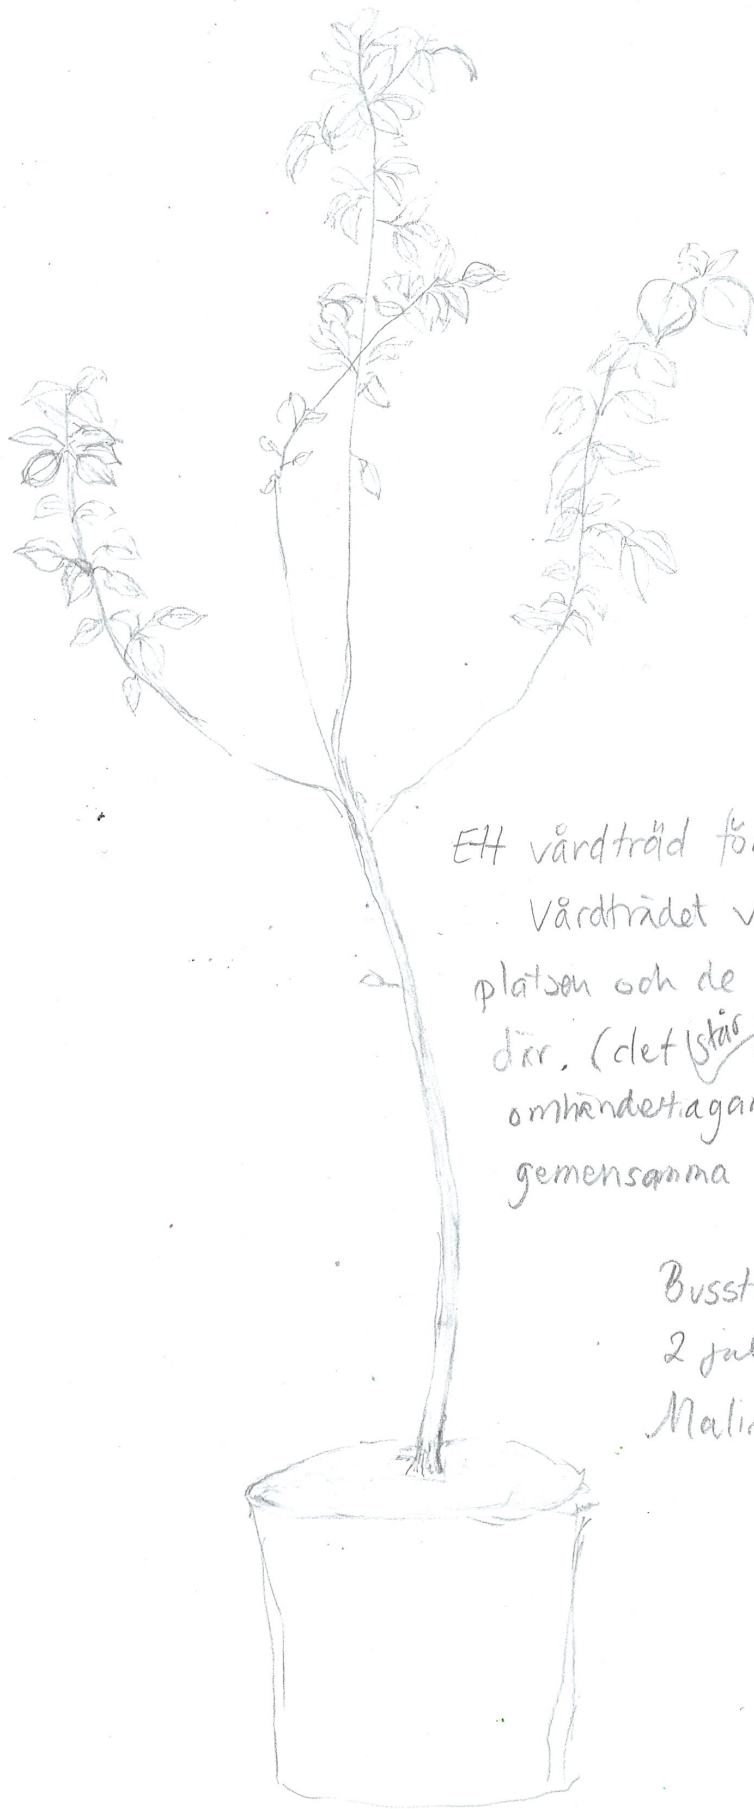 Ett vårdträd för
Vårdträdet v
platsen och de
där. (det står
omhändertagan
gemensamma
Busst
2 jul
Malin